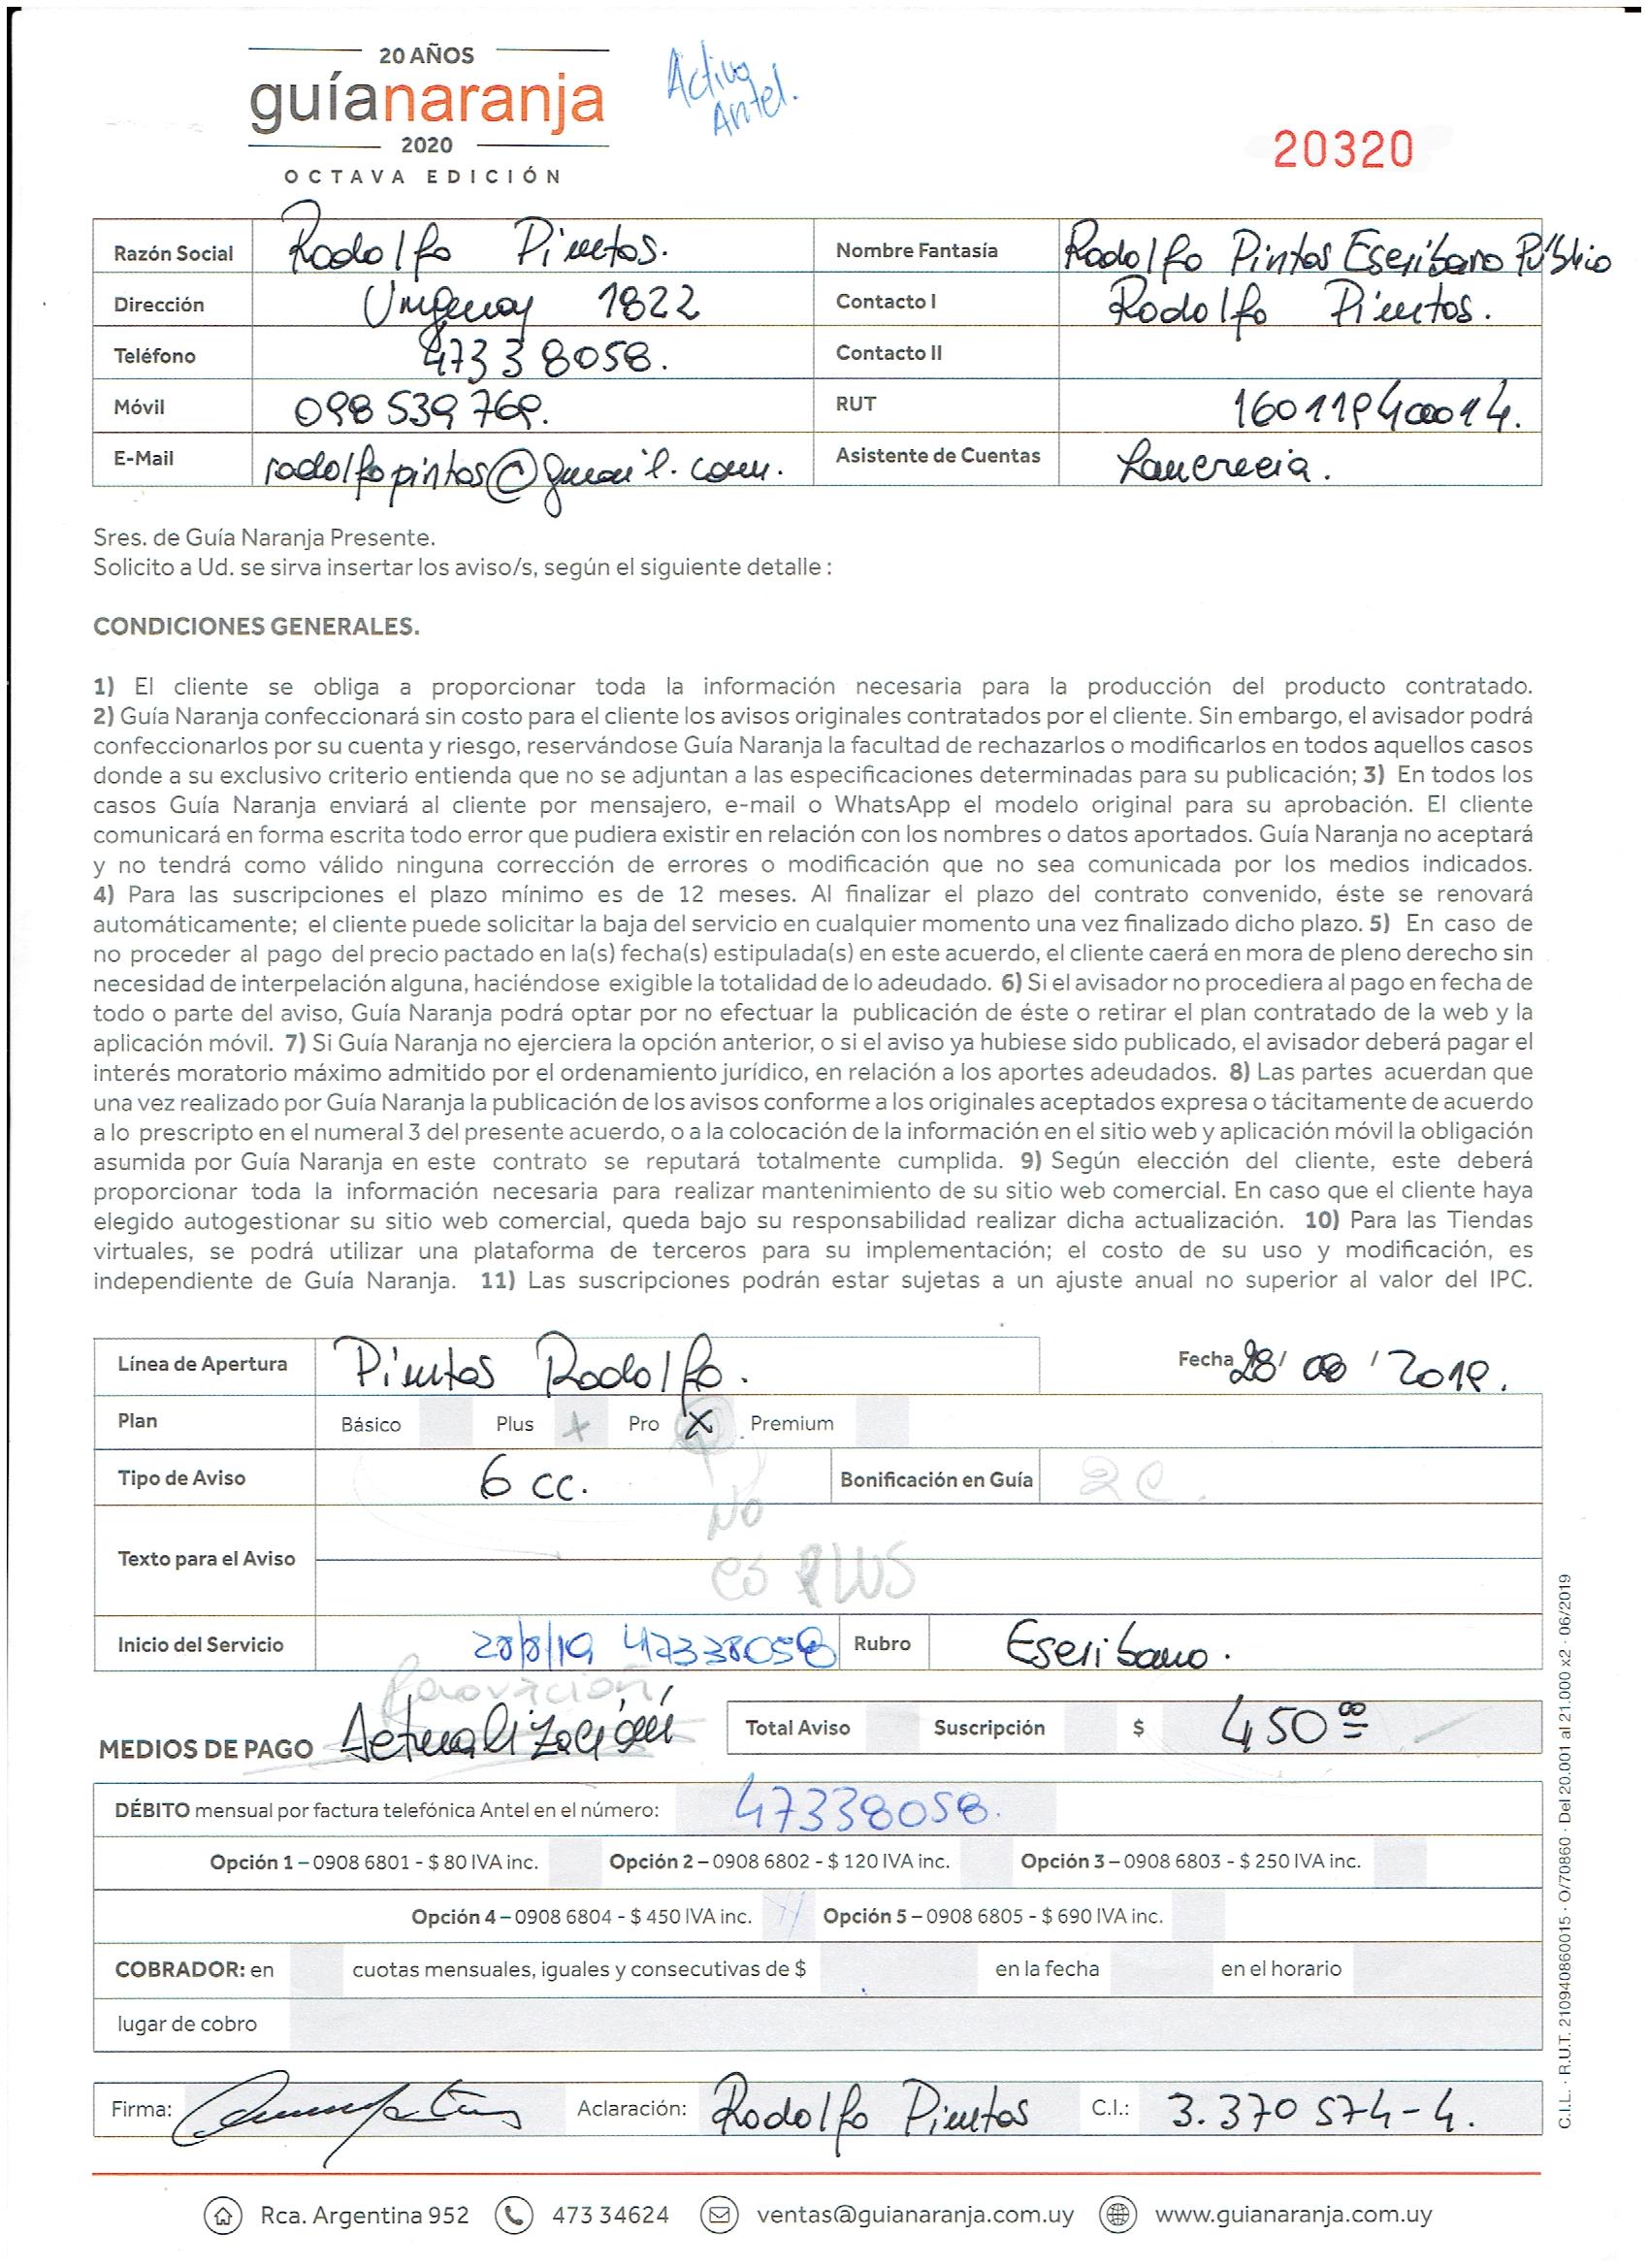 20 AÑOS
guíanaranja
2020
OCTAVA EDICIÓN
Activo
Antel.
20320
Razón Social Rodolfo Pintos. Nombre Fantasía Rodolfo Pintos Escribano Público
Dirección Uruguay 1822 Contacto I Rodolfo Pintos.
Teléfono 47338058. Contacto II
Móvil 098 539 769. RUT 160119400014.
E-Mail rodolfopintos@gmail.com. Asistente de Cuentas
Sres. de Guía Naranja Presente.
Solicito a Ud. se sirva insertar los aviso/s, según el siguiente detalle :
CONDICIONES GENERALES.
1) El cliente se obliga a proporcionar toda la información necesaria para la producción del producto contratado.
2) Guía Naranja confeccionará sin costo para el cliente los avisos originales contratados por el cliente. Sin embargo, el avisador podrá
confeccionarlos por su cuenta y riesgo, reservándose Guía Naranja la facultad de rechazarlos o modificarlos en todos aquellos casos
donde a su exclusivo criterio entienda que no se adjuntan a las especificaciones determinadas para su publicación; 3) En todos los
casos Guía Naranja enviará al cliente por mensajero, e-mail o WhatsApp el modelo original para su aprobación. El cliente
comunicará en forma escrita todo error que pudiera existir en relación con los nombres o datos aportados. Guía Naranja no aceptará
y no tendrá como válido ninguna corrección de errores o modificación que no sea comunicada por los medios indicados.
4) Para las suscripciones el plazo mínimo es de 12 meses. Al finalizar el plazo del contrato convenido, éste se renovará
automáticamente; el cliente puede solicitar la baja del servicio en cualquier momento una vez finalizado dicho plazo. 5) En caso de
no proceder al pago del precio pactado en la(s) fecha(s) estipulada(s) en este acuerdo, el cliente caerá en mora de pleno derecho sin
necesidad de interpelación alguna, haciéndose exigible la totalidad de lo adeudado. 6) Si el avisador no procediera al pago en fecha de
todo o parte del aviso, Guía Naranja podrá optar por no efectuar la publicación de éste o retirar el plan contratado de la web y la
aplicación móvil. 7) Si Guía Naranja no ejerciera la opción anterior, o si el aviso ya hubiese sido publicado, el avisador deberá pagar el
interés moratorio máximo admitido por el ordenamiento jurídico, en relación a los aportes adeudados. 8) Las partes acuerdan que
una vez realizado por Guía Naranja la publicación de los avisos conforme a los originales aceptados expresa o tácitamente de acuerdo
a lo prescripto en el numeral 3 del presente acuerdo, o a la colocación de la información en el sitio web y aplicación móvil la obligación
asumida por Guía Naranja en este contrato se reputará totalmente cumplida. 9) Según elección del cliente, este deberá
proporcionar toda la información necesaria para realizar mantenimiento de su sitio web comercial. En caso que el cliente haya
elegido autogestionar su sitio web comercial, queda bajo su responsabilidad realizar dicha actualización. 10) Para las Tiendas
virtuales, se podrá utilizar una plataforma de terceros para su implementación; el costo de su uso y modificación, es
independiente de Guía Naranja. 11) Las suscripciones podrán estar sujetas a un ajuste anual no superior al valor del IPC.
Línea de Apertura Pintos Rodolfo. Fecha 28/ 08 / 2019.
Plan Básico Plus + Pro X Premium
Tipo de Aviso 6 cc. Bonificación en Guía 2C.
No
es PLUS
Texto para el Aviso
Inicio del Servicio 28/8/19 47338058 Rubro Escribano.
Renovación
MEDIOS DE PAGO Actualización Total Aviso Suscripción $ 450 00
DÉBITO mensual por factura telefónica Antel en el número: 47338058.
Opción 1 – 0908 6801 - $ 80 IVA inc. Opción 2 – 0908 6802 - $ 120 IVA inc. Opción 3 – 0908 6803 - $ 250 IVA inc.
Opción 4 – 0908 6804 - $ 450 IVA inc. Opción 5 – 0908 6805 - $ 690 IVA inc.
COBRADOR: en cuotas mensuales, iguales y consecutivas de $ en la fecha en el horario
lugar de cobro
Firma: Aclaración: Rodolfo Pintos C.I.: 3.370 574-4.
C.I.L. · R.U.T. 210940860015 · O/70860 · Del 20.001 al 21.000 x2 · 06/2019
Rca. Argentina 952 473 34624 ventas@guianaranja.com.uy www.guianaranja.com.uy